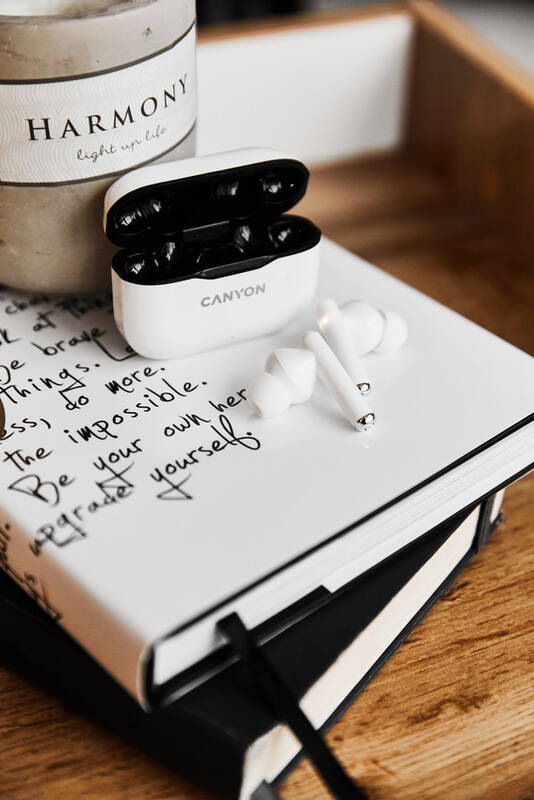 HARMONY
light up life
CANYON
at
be brave
things.
do more.
the impossible.
Be your own her
upgrade yourself.